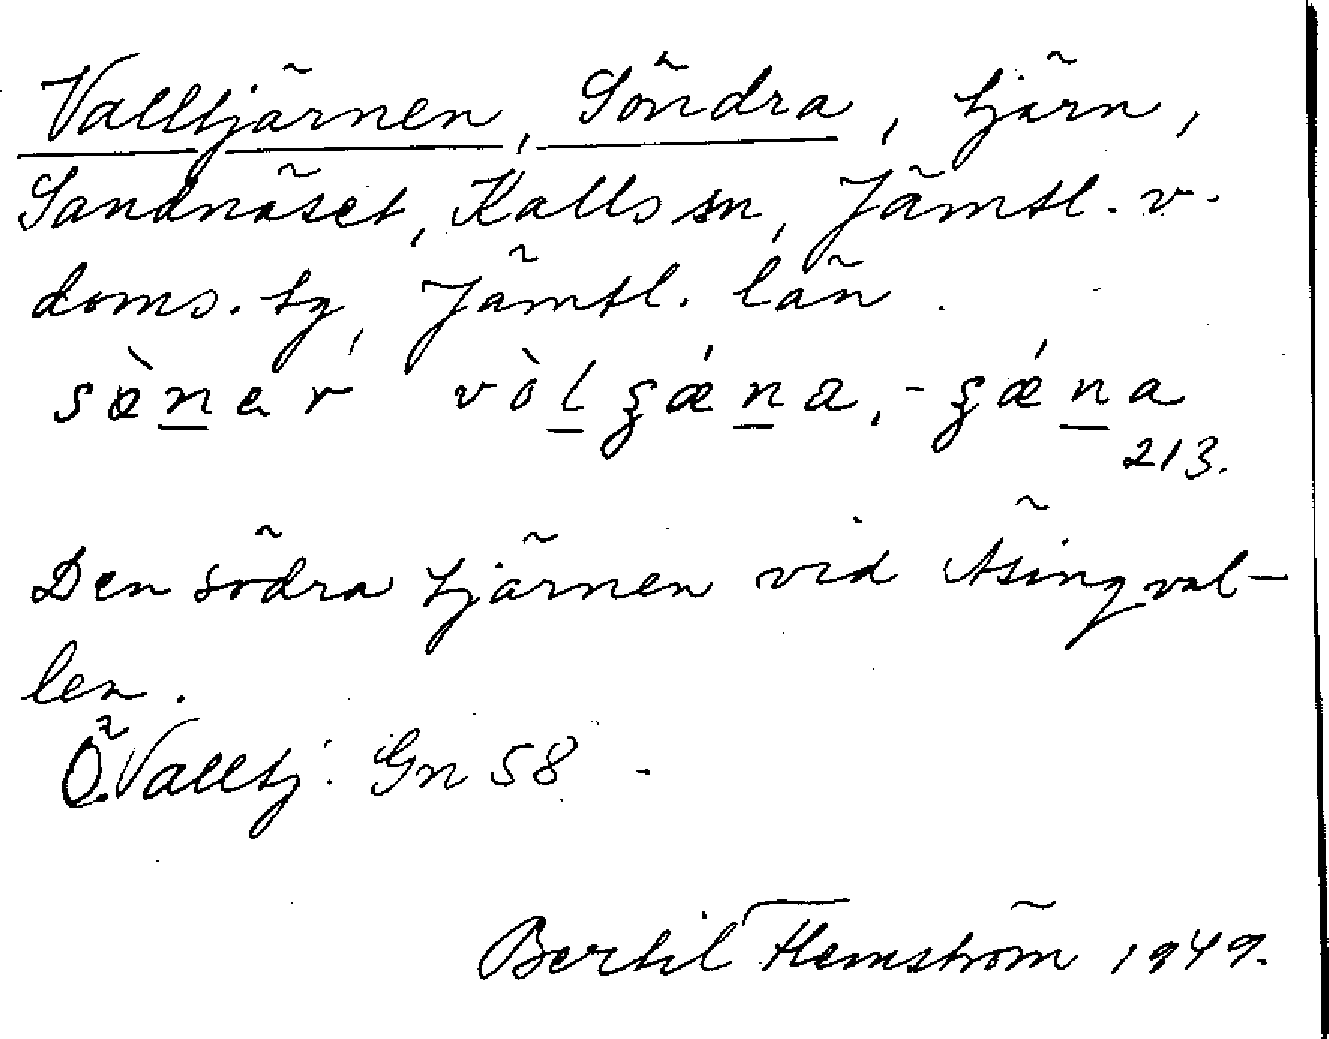 Valltjärnen, Söndra, tjärn,
Sandnäset, Kalls sn, Jämtl. v.
doms. tg, Jämtl. län.
sæ̀n̲ar vòl̲ʒǽn̲a, -ʒǽn̲a
213.
Den södra tjärnen vid Åsingval-
len.
Ö. Valltj: Gn 58
Bertil Flemström 1949.